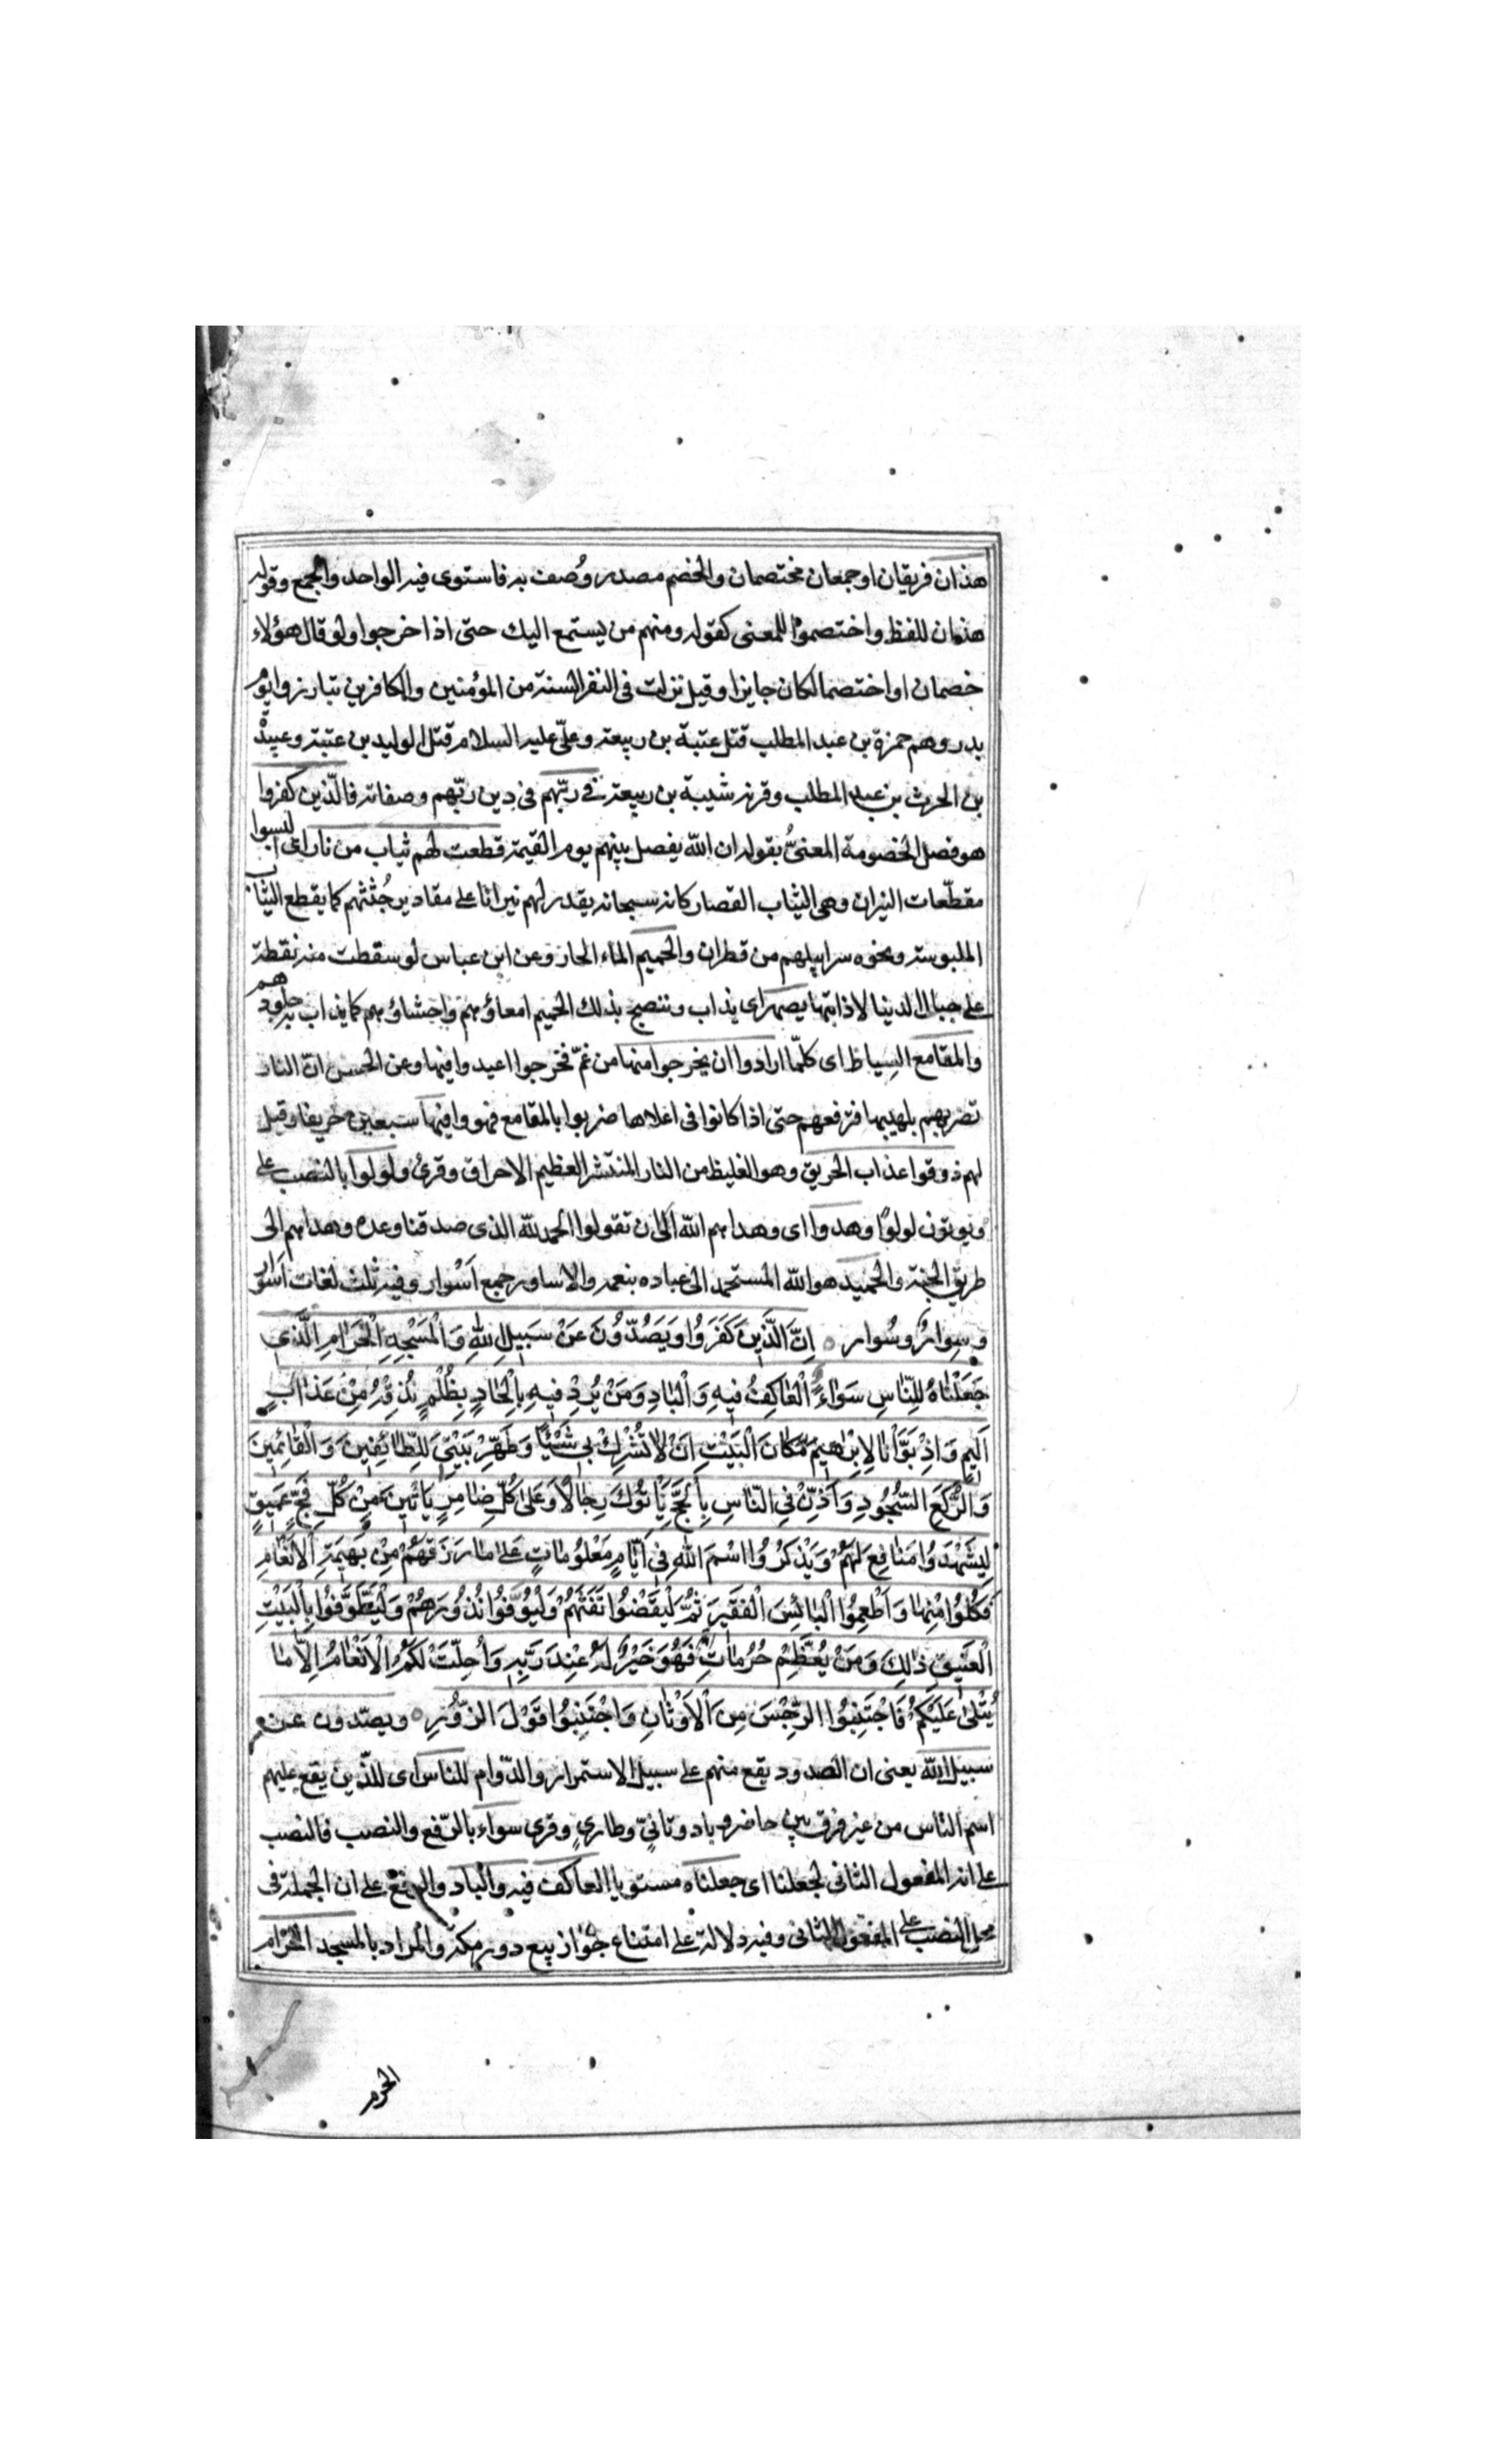 هذان فريقان او جمعان مختصمان والخصم مصدر وُصف به فاستوى فيه الواحد والجمع وقوله
هذان للفظ واختصموا للمعنى كقوله ومنهم من يستمع اليك حتى اذا خرجوا ولو قال هؤلاء
خصمان او اختصما لكان جايزا وقيل نزلت فى النفر الستة من المؤمنين والكافرين تبارزوا يوم
بدر وهم حمزة بن عبد المطلب قتل عتبة بن ربيعة وعلىّ عليه السلام قتل الوليد بن عتبة وعبيدة
بن الحرث بن عبد المطلب وقرنه شيبة بن ربيعة فى ربّهم فى دين ربّهم وصفاته فالّذين كفروا
هو فصل الخصومة المعنىّ بقوله ان الله يفصل بينهم يوم القيمة قطعت لهم ثياب من نار اى البسوا
مقطّعات النيران وهى الثياب القصار كانه سبحانه يقدر لهم نيرانا على مقادير جُثثهم كما يقطع الثياب
الملبوسة ونحوه سرابيلهم من قطران والحميم الماء الحار وعن ابن عباس لو سقطت منه نقطة
على جبال الدنيا لاذابتها يصهر اى يذاب وننضج بذلك الحميم امعاؤهم واحشاؤهم كما يذاب به جلودهم
والمقامع السياط اى كلّما ارادوا ان يخرجوا منها من غمّ فخرجوا اعيدوا فيها وعن الحسن انّ النار
تضربهم بلهبها فترفعهم حتى اذا كانوا فى اعلاها ضربوا بالمقامع فهووا فيها سبعين خريفا وقيل
لهم ذوقوا عذاب الحريق وهو الغليظ من النار المنتشر العظيم الاحراق وقرئ ولولوا بالنصب على
ويوتون لولوًا وهدوا اى وهداهم الله الى ان تقولوا الحمد لله الذى صدقنا وعده وهداهم الى
طريق الجنة والحميد هو الله المستحمد الى عباده بنعمه والاساور جمع اَسْوار وفيه ثلث لغات اسوار
وسِوارٌ وسُوار ٥ اِنَّ الَّذِينَ كَفَرُوا وَيَصُدُّونَ عَنْ سَبِيلِ اللهِ وَالْمَسْجِدِ الْحَرَامِ الَّذِى
جَعَلْنَاهُ لِلنَّاسِ سَوَاءً الْعَاكِفُ فِيهِ وَالْبَادِ وَمَنْ يُرِدْ فِيهِ بِاِلْحَادٍ بِظُلْمٍ نُذِقْهُ مِنْ عَذَابٍ
اَلِيمٍ وَاِذْ بَوَّأْنَا لِاِبْرٰهِيمَ مَكَانَ الْبَيْتِ اَنْ لَا تُشْرِكْ بِى شَيْئًا وَطَهِّرْ بَيْتِىَ لِلطَّائِفِينَ وَالْقَائِمِينَ
وَالرُّكَّعِ السُّجُودِ وَاَذِّنْ فِى النَّاسِ بِالْحَجِّ يَأْتُوكَ رِجَالًا وَعَلٰى كُلِّ ضَامِرٍ يَأْتِينَ مِنْ كُلِّ فَجٍّ عَمِيقٍ
لِيَشْهَدُوا مَنَافِعَ لَهُمْ وَيَذْكُرُوا اسْمَ اللهِ فِى اَيَّامٍ مَعْلُومَاتٍ عَلٰى مَا رَزَقَهُمْ مِنْ بَهِيمَةِ الْاَنْعَامِ
فَكُلُوا مِنْهَا وَاَطْعِمُوا الْبَائِسَ الْفَقِيرَ ثُمَّ لْيَقْضُوا تَفَثَهُمْ وَلْيُوفُوا نُذُورَهُمْ وَلْيَطَّوَّفُوا بِالْبَيْتِ
الْعَتِيقِ ذٰلِكَ وَمَنْ يُعَظِّمْ حُرُمَاتِ فَهُوَ خَيْرٌ لَهُ عِنْدَ رَبِّهِ وَاُحِلَّتْ لَكُمُ الْاَنْعَامُ اِلَّا مَا
يُتْلٰى عَلَيْكُمْ فَاجْتَنِبُوا الرِّجْسَ مِنَ الْاَوْثَانِ وَاجْتَنِبُوا قَوْلَ الزُّورِ ٥ ويصدّون عن
سبيل الله يعنى ان الصدود يقع منهم على سبيل الاستمرار والدّوام للناس اى للّذين يقع عليهم
اسم الناس من غير فرق بين حاضر وباد وتانئٍ وطارئٍ وقرئ سواء بالرّفع والنصب فالنصب
على انه المفعول الثانى لجعلنا اى جعلناه مستويا العاكف فيه والباد والرفع على ان الجملة فى
محل النصب على المفعول الثانى وفيه دلالة على امتناع جواز بيع دور مكة والمراد بالمسجد الحرام
الحرم